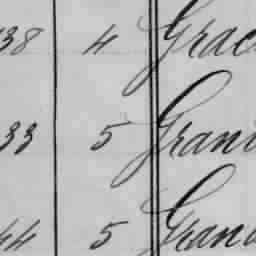 38 4 Grac
33 5 Gran
44 5 Grana